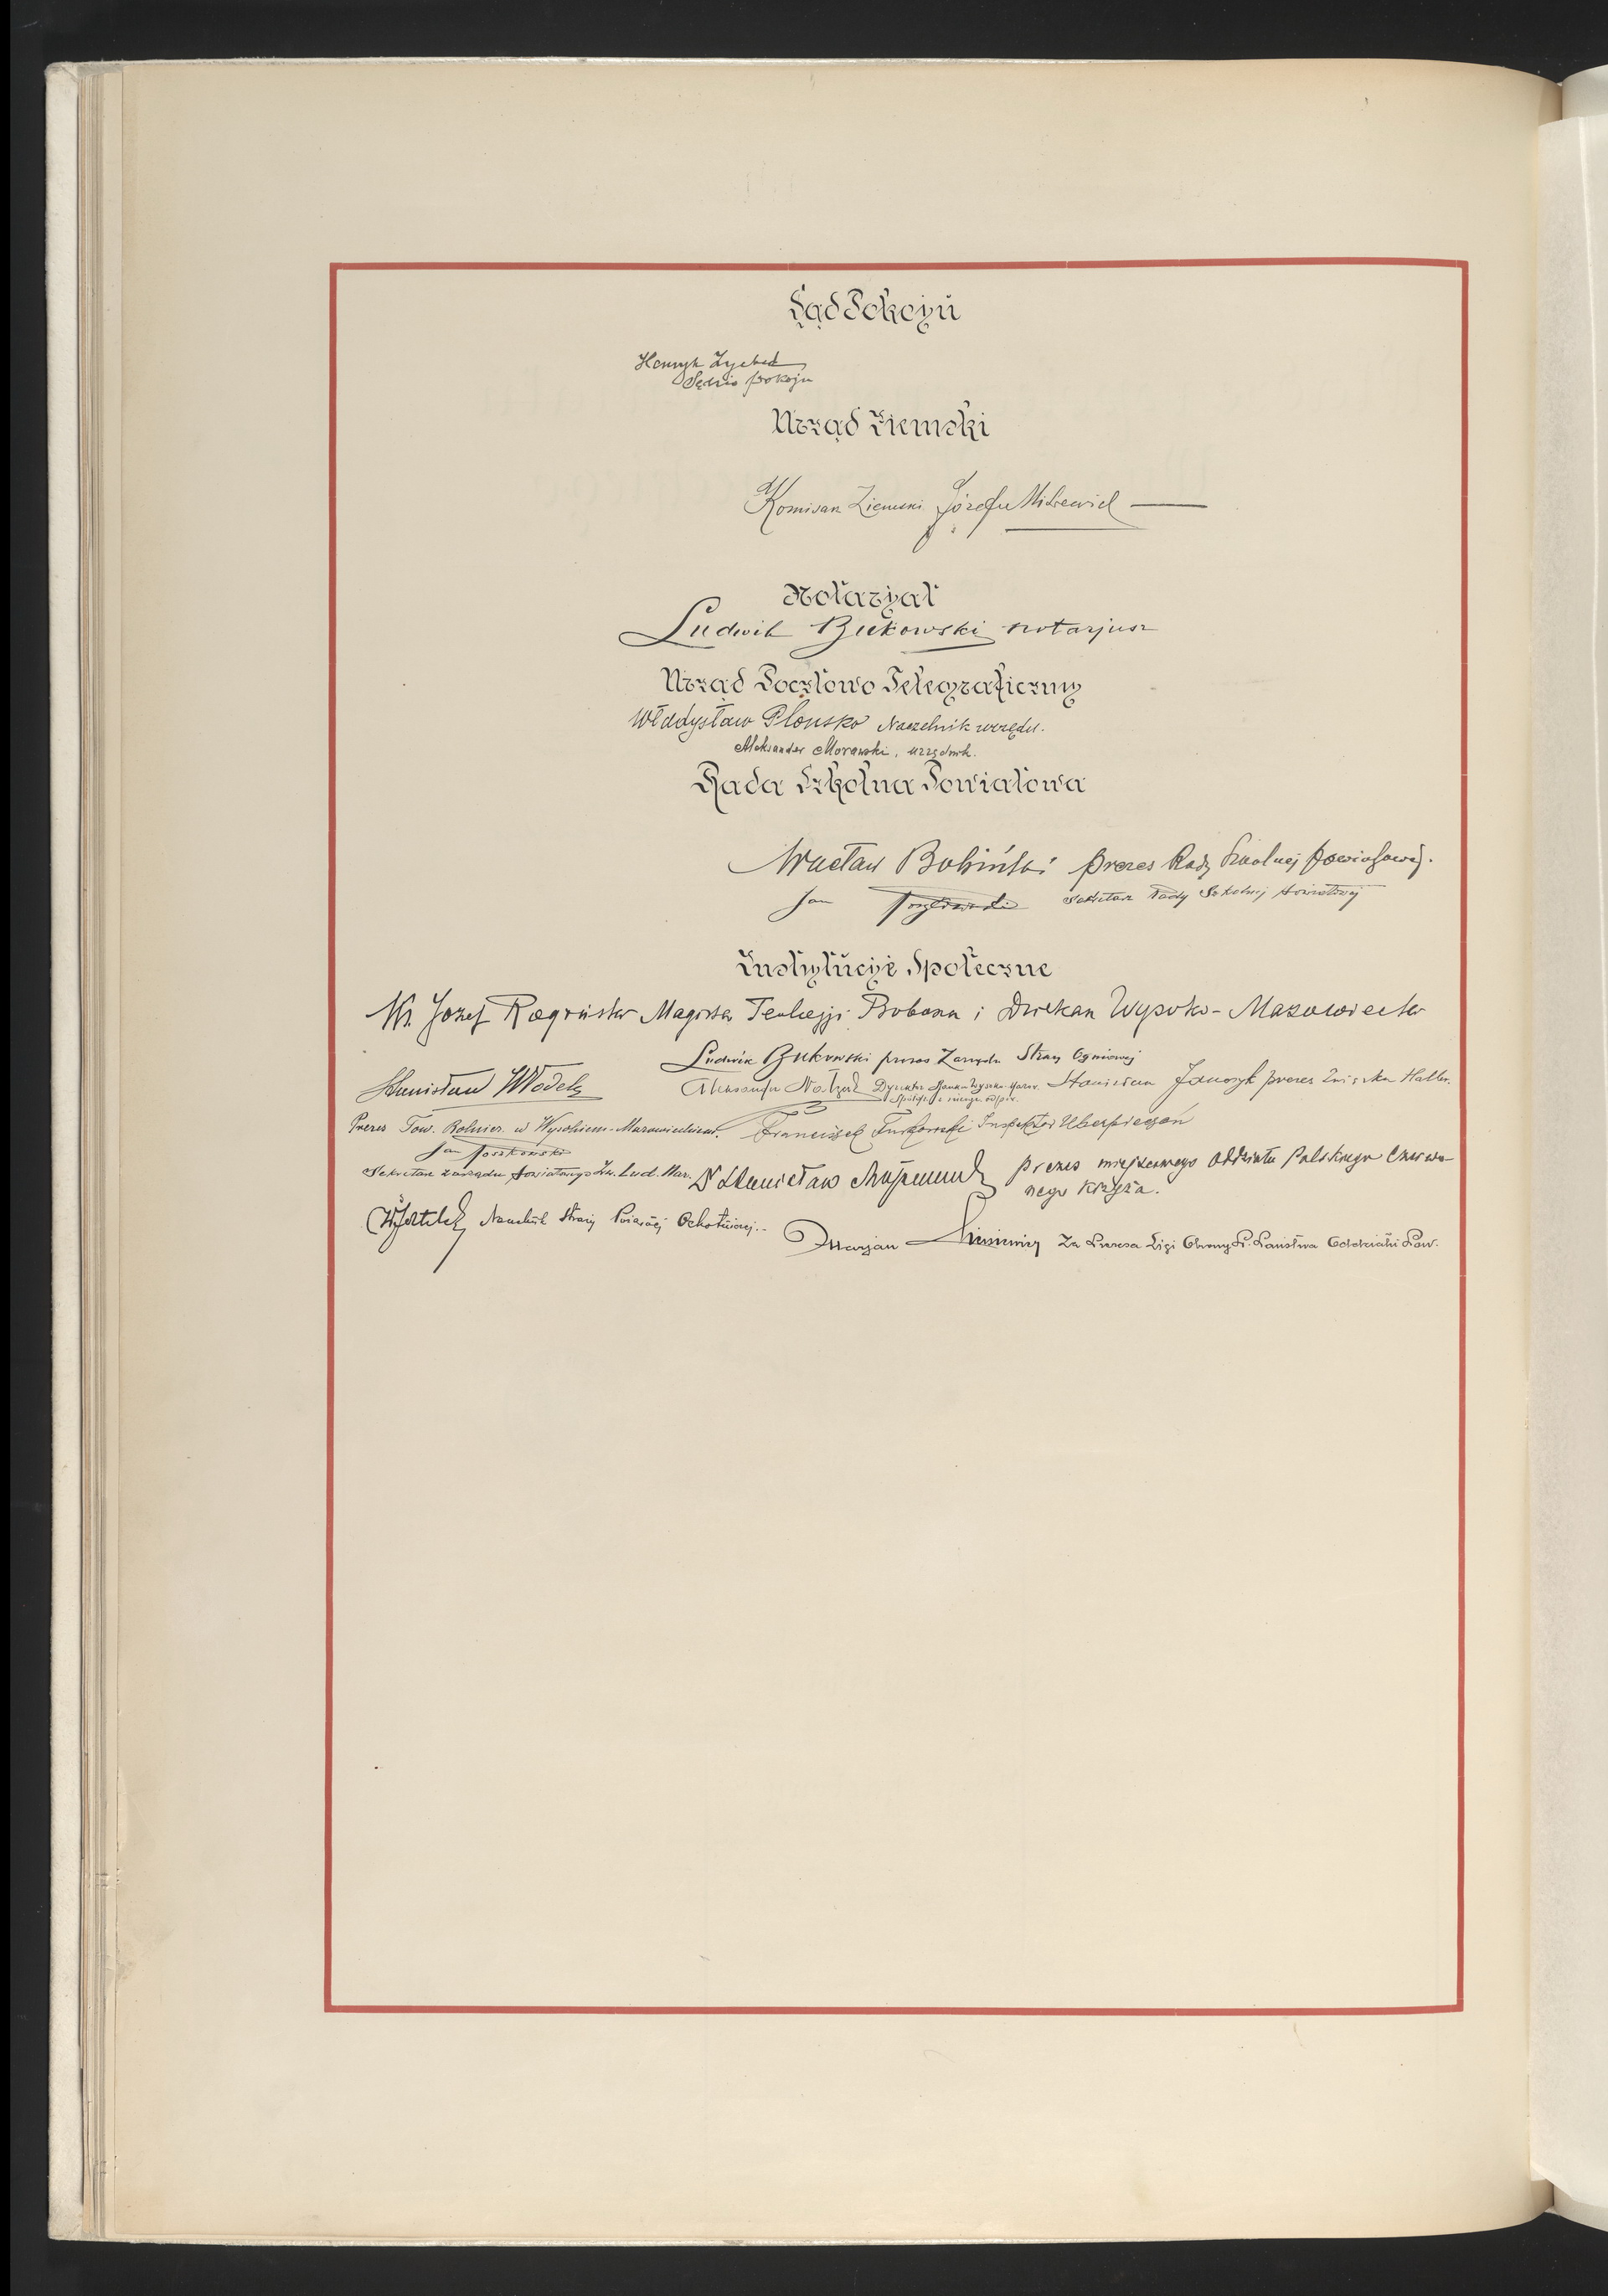 Sąd Pokoju
Henryk Zychad
Sędzia pokoju
Urząd Ziemski
Komisarz Ziemski Józef
Notaryat
Ludwik Bukowski notarjusz
Urząd Pocztowo Telegraficzny
Władysław Płonsko Naczelnik urzędu.
Aleksander Morawski, urzędnik.
Rada Szkolna Powiatowa
Wacław Bobiński prezes Rady Szkolnej Powiatowej.
Jan sekretarz Rady Szkolnej Powiatowej
Instytucje Społeczne
Ks. Józef Magister Teologji Proboszcz i Dziekan Wysoko-Mazowiecki
Ludwik Bukowski prezes Zarządu Straży Ogniowej
Stanisław Włodek
Dyrektor Banku Wysoko-Mazow. Stanisław Janczyk prezes Związku Haller.
Spółdz. z ogr. odpow.
Prezes Tow. Rolnicz. w Wysokiem-Mazowieckiem. Franciszek Inspektor Ubezpieczeń
Jan Joszkowski
Sekretarz zarządu powiatowego Zw. Lud. Nar. Dr Stanisław prezes miejscowego oddziału Polskiego Czerwo-
nego Krzyża.
Naczelnik Straży Pożarnej Ochotniczej.-
Marjan Za Prezesa Ligi Obrony P. Państwa Oddziału Pow.